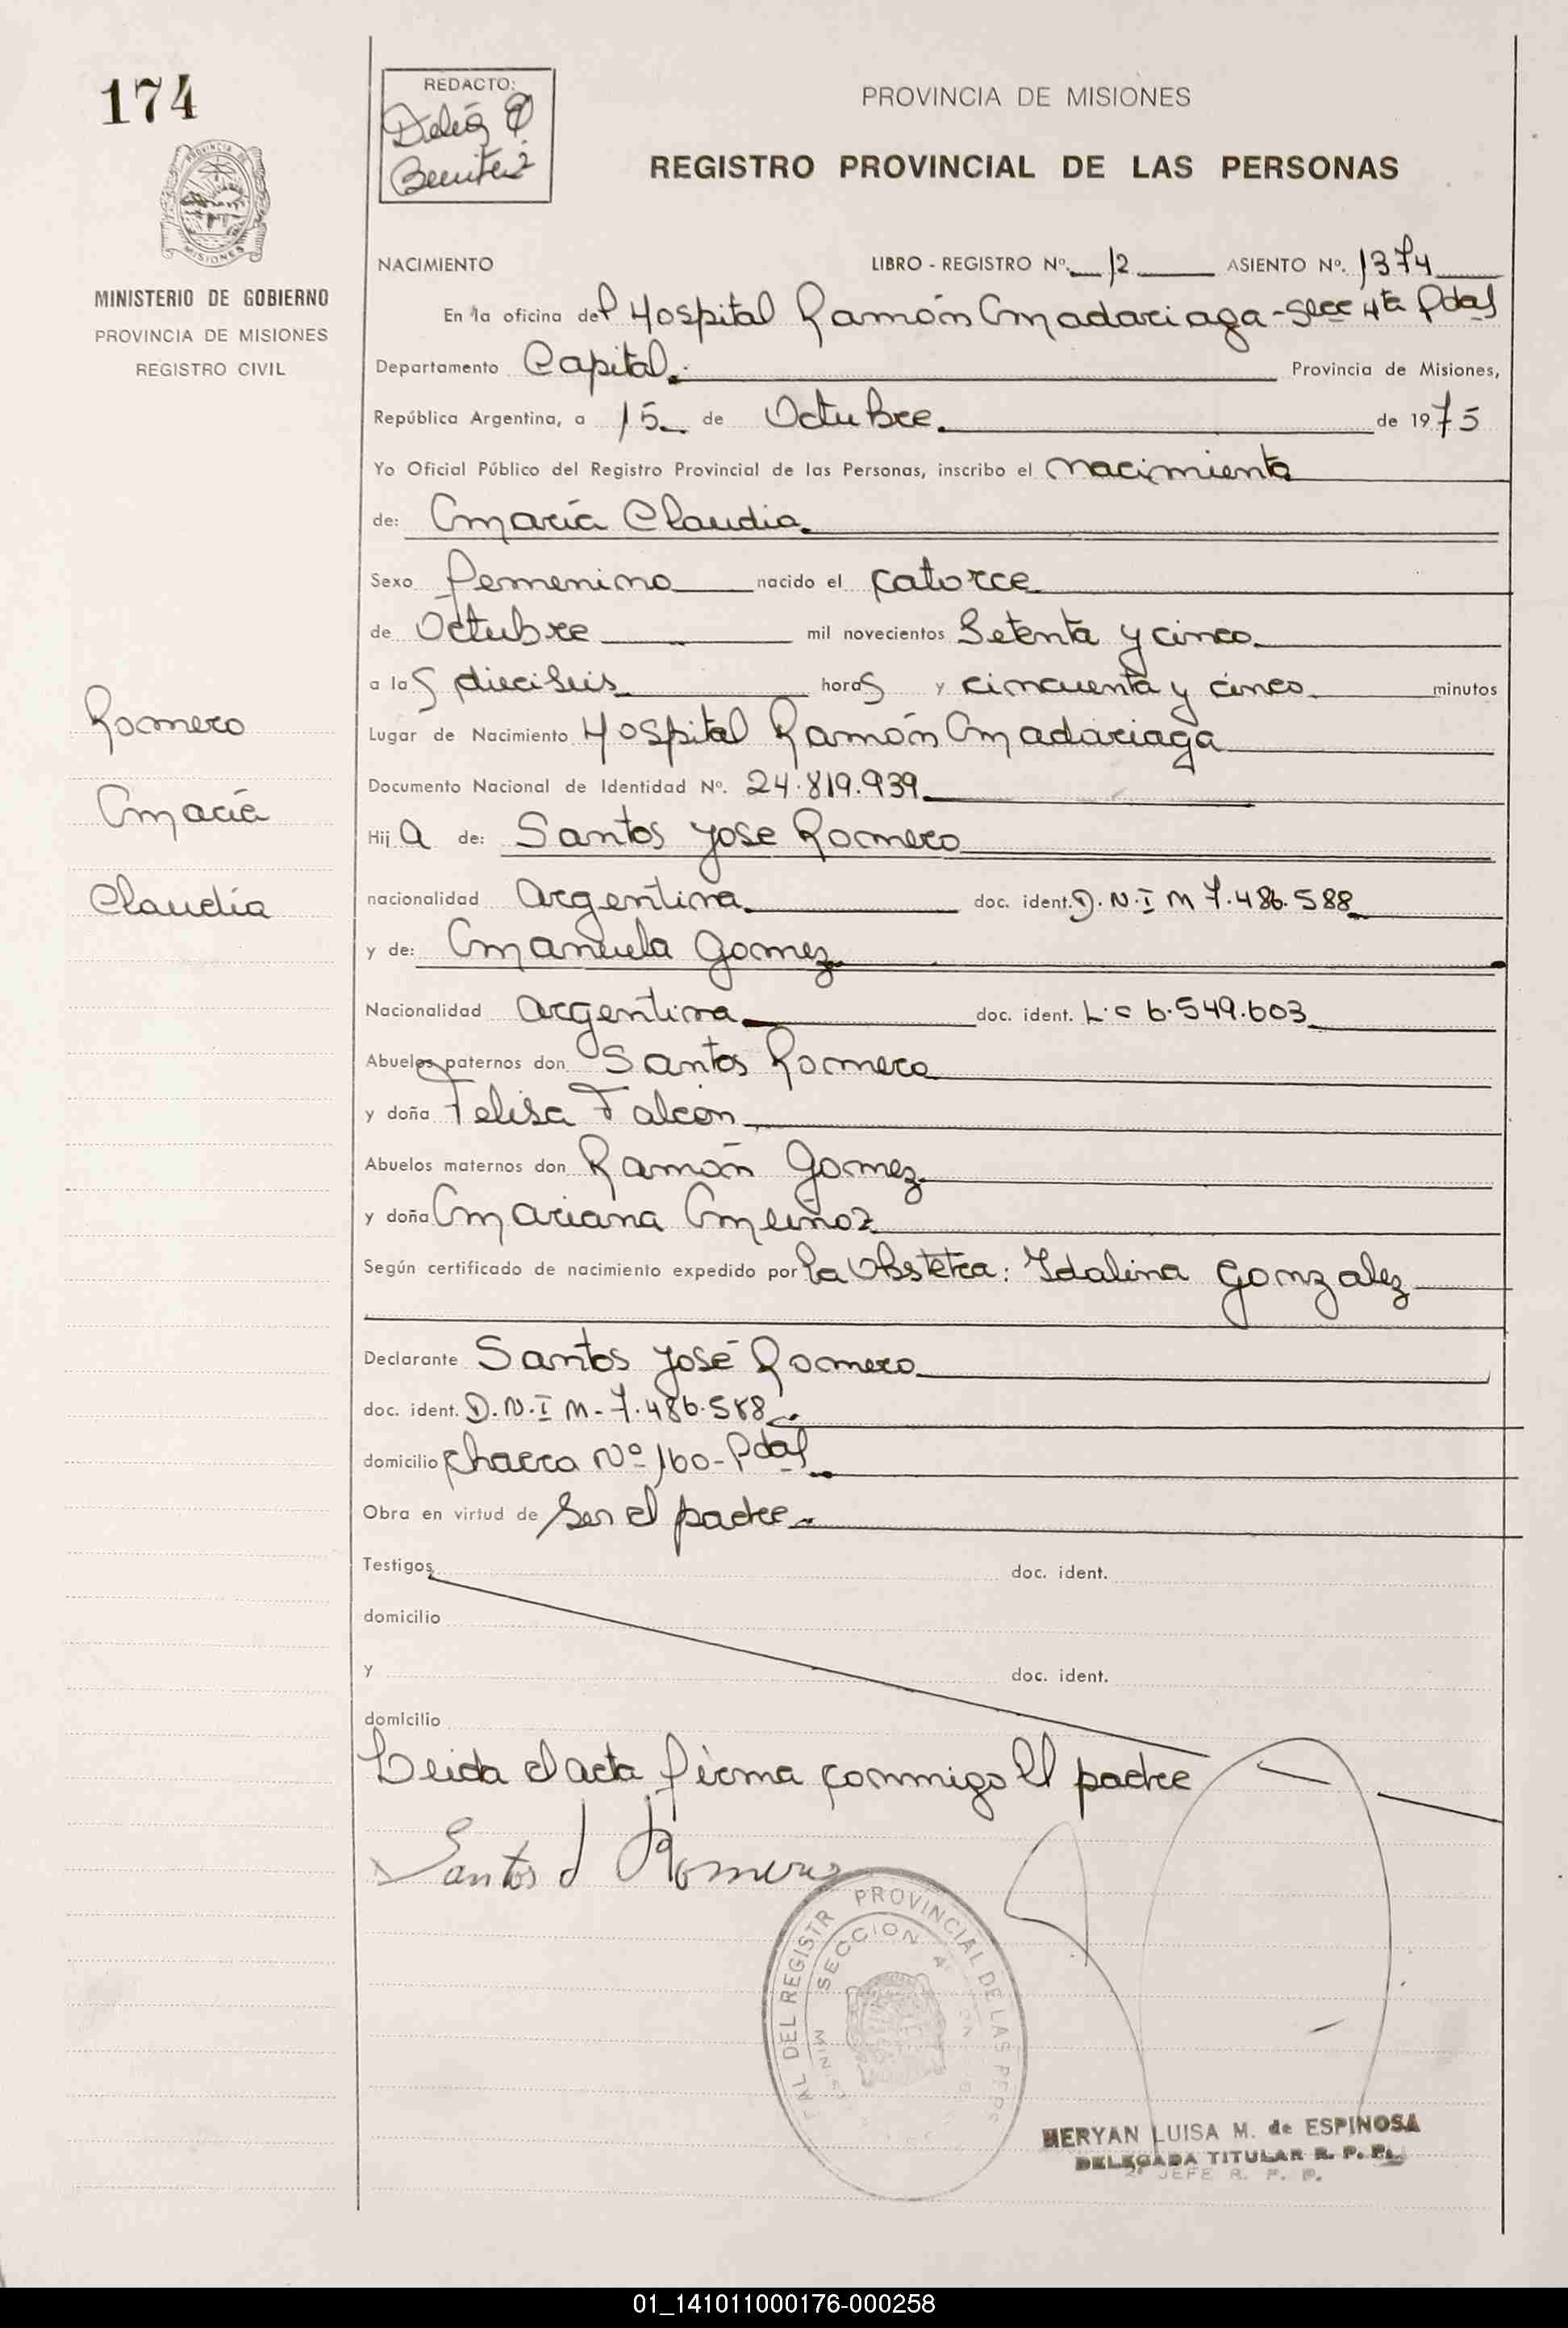 174
REDACTO:
Delia
Benitez
PROVINCIA DE MISIONES
REGISTRO PROVINCIAL DE LAS PERSONAS
PROVINCIA DE
MISIONES
MINISTERIO DE GOBIERNO
PROVINCIA DE MISIONES
REGISTRO CIVIL
NACIMIENTO LIBRO - REGISTRO Nº. 12 ASIENTO Nº. 1374
En la oficina del Hospital Ramón Madariaga - Secc 4ta Pdas
Departamento Capital. Provincia de Misiones,
República Argentina, a 15 de Octubre. de 1975
Yo Oficial Público del Registro Provincial de las Personas, inscribo el nacimiento
de: María Claudia
Sexo femenino nacido el catorce
de Octubre mil novecientos Setenta y cinco
a las dieciseis horas y cincuenta y cinco minutos
Lugar de Nacimiento Hospital Ramón Madariaga
Documento Nacional de Identidad Nº. 24.819.939
Hija de: Santos Jose Romero
nacionalidad Argentina doc. ident. D.N.I M 7.486.588
y de: Manuela Gomez
Nacionalidad Argentina doc. ident. L.C 6.549.603
Abuelos paternos don Santos Romero
y doña Felisa Falcon
Abuelos maternos don Ramón Gomez
y doña Mariana Muñoz
Según certificado de nacimiento expedido por la Obstetra: Idalina Gonzalez
Declarante Santos José Romero
doc. ident. D.N.I M- 7.486.588
domicilio Chacra Nº 160 - Pdas
Obra en virtud de ser el padre
Testigos doc. ident.
domicilio
y doc. ident.
domicilio
Leida el acta firma conmigo el padre
Santos J Romero
Romero
María
Claudia
DEL REGISTR PROVINCIAL DE LAS PERS
SECCION 4
HERYAN LUISA M. de ESPINOSA
DELEGADA TITULAR R. P. P.
2º JEFE R. P. P.
01_141011000176-000258